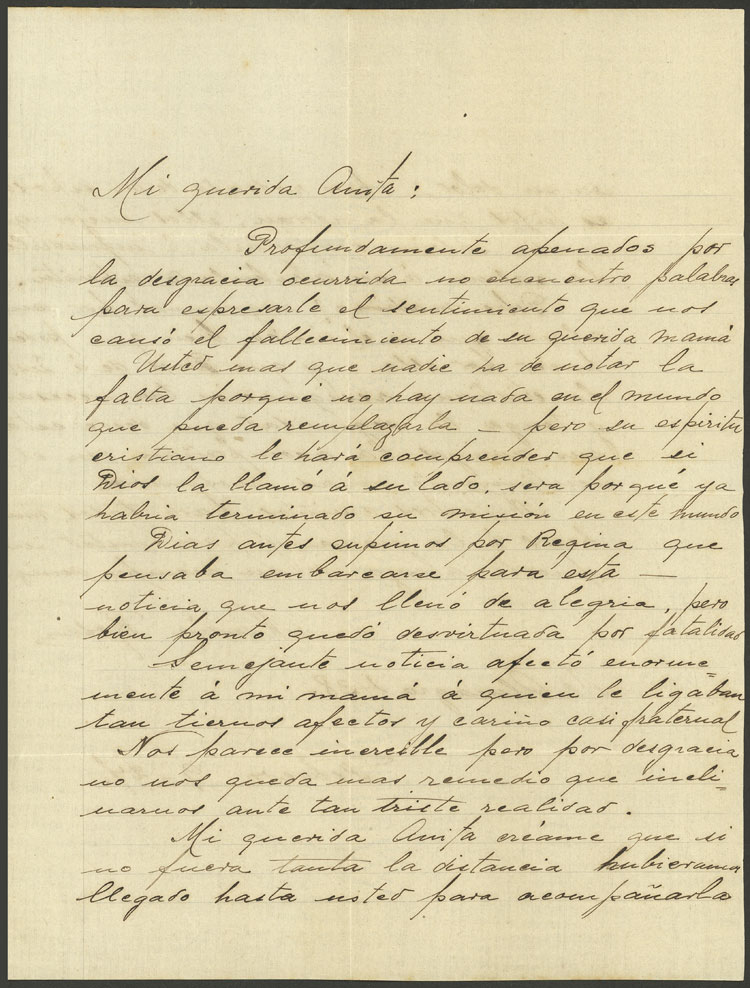 Mi querida Anita:
Profundamente apenados por
la desgracia ocurrida no encuentro palabras
para espresarle el sentimiento que nos
causó el fallecimiento de su querida mamá
Usted mas que nadie ha de notar la
falta porque no hay nada en el mundo
que pueda remplazarla – pero su espiritu
cristiano le hará comprender que si
Dios la llamó á su lado, sera porqué ya
habria terminado su misión en este mundo
Dias antes supimos por Regina que
pensaba embarcarse para esta –
noticia que nos llenó de alegria, pero
bien pronto quedó desvirtuada por fatalidad
Semejante noticia afectó enorme=
mente á mi mamá á quien le ligaban
tan tiernos afectos y cariño casi fraternal
Nos parece increible pero por desgracia
no nos queda mas remedio que incli=
narnos ante tan triste realidad.
Mi querida Anita créame que si
no fuera tanta la distancia hubieramos
llegado hasta usted para acompañarla